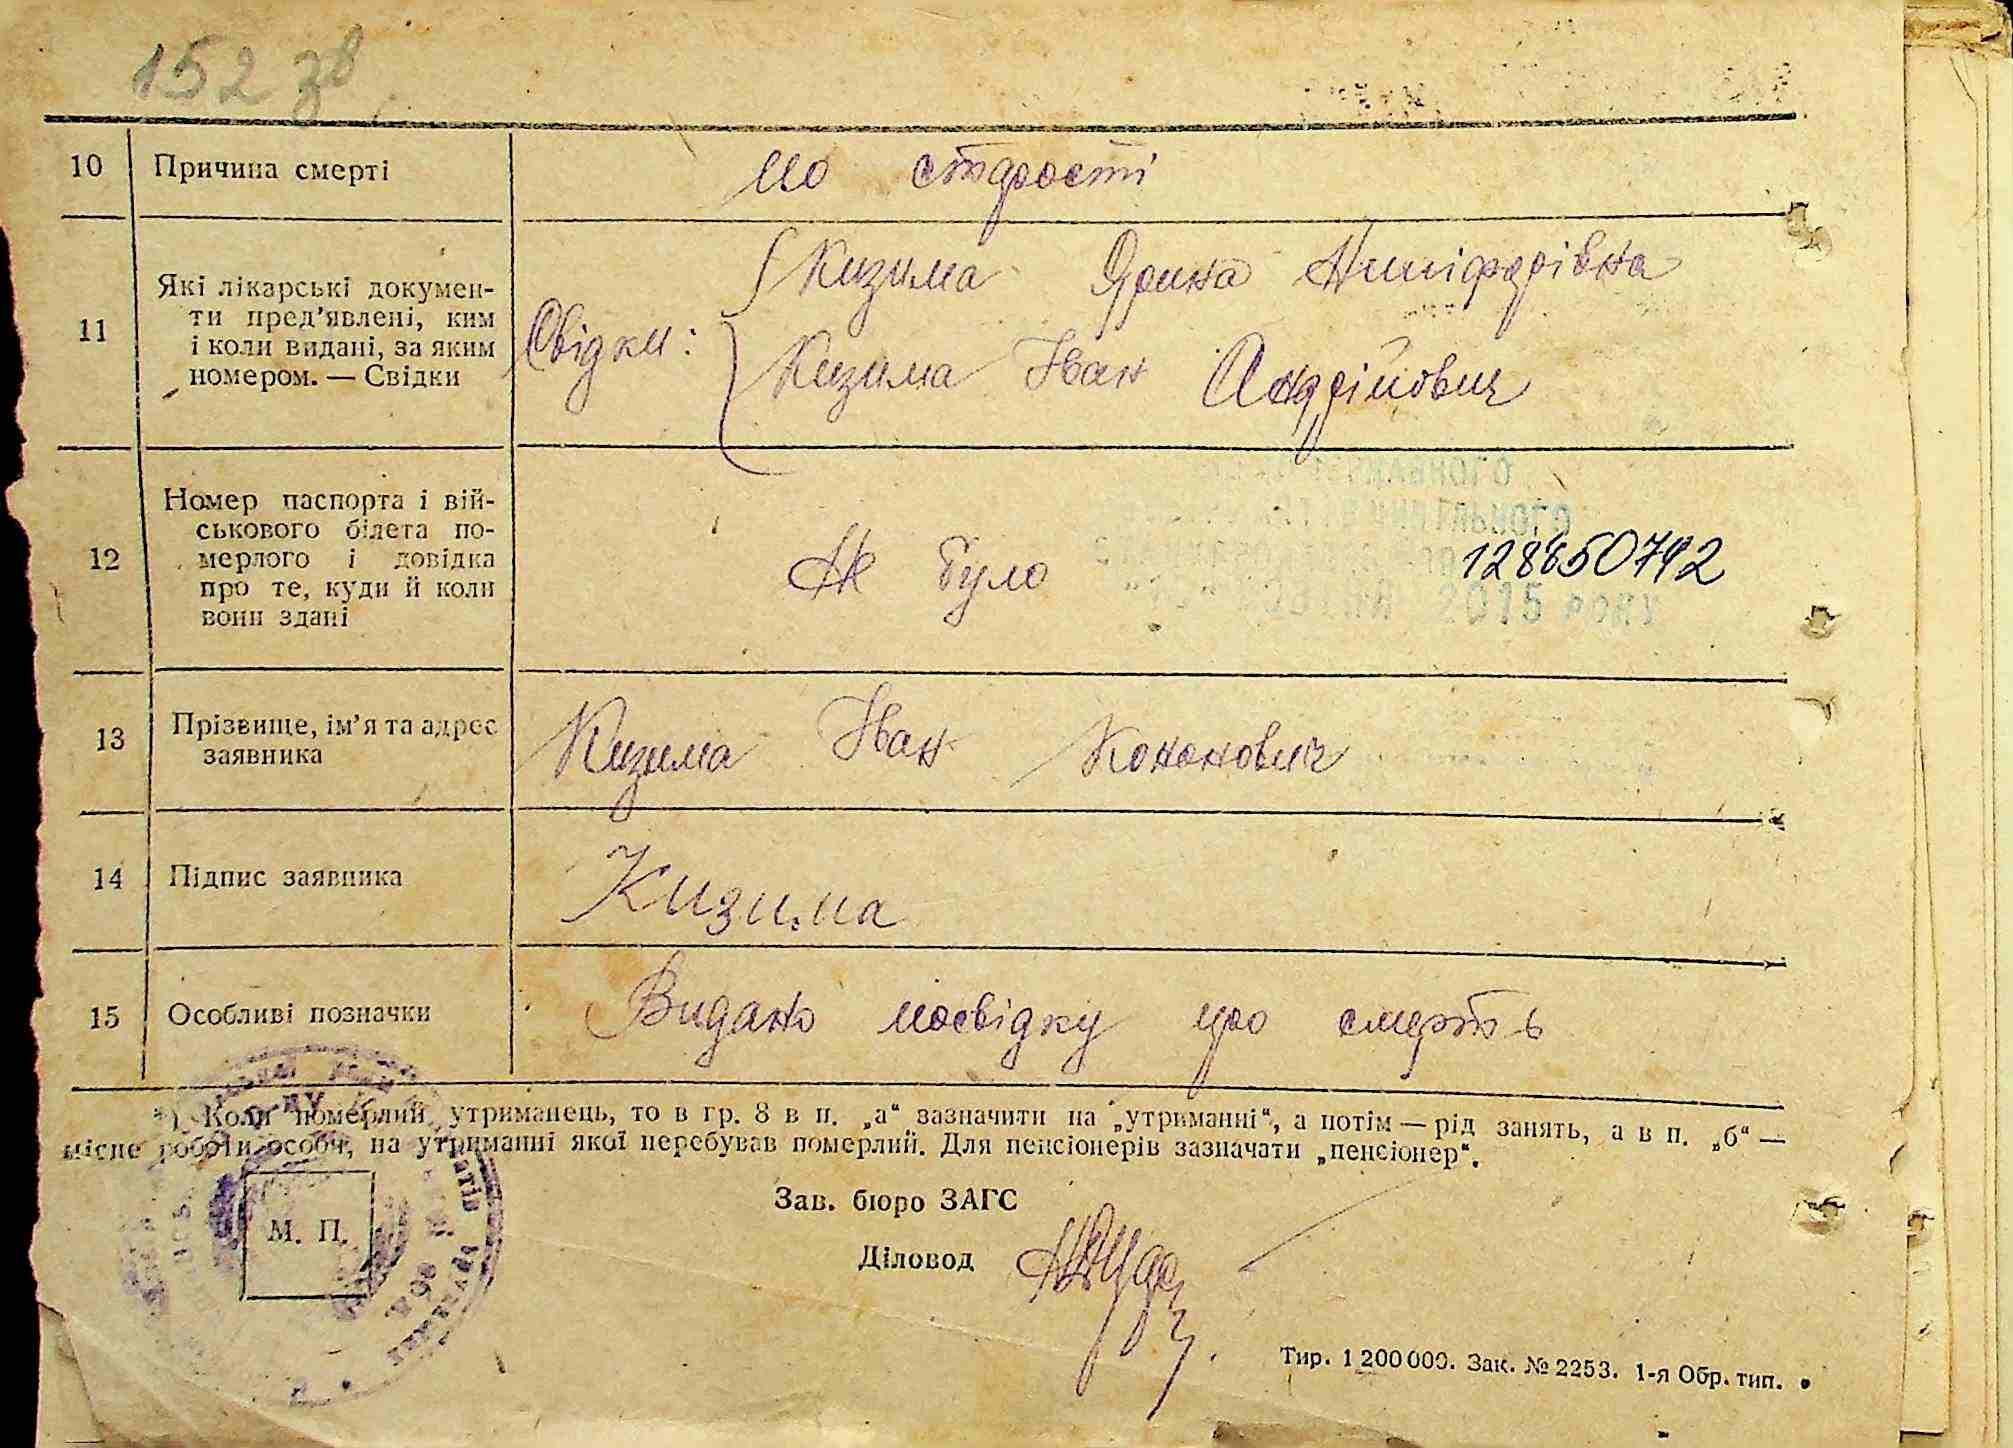 152 зв
10 Причина смерті по старості
11 Які лікарські докумен-
ти пред’явлені, ким
і коли видані, за яким
номером. — Свідки
Свідки:
Кизима Ярина Никіфорівна
Кизима Іван Андрійович
12 Номер паспорта і вій-
ськового білета по-
мерлого і довідка
про те, куди й коли
вони здані
Не було
128650792
2015 РОКУ
13 Прізвище, ім’я та адрес
заявника
Кизима Іван Кононович
14 Підпис заявника Кизима
15 Особливі позначки Видано посвідку про смерть
*) Коли померлий утриманець, то в гр. 8 в п. „а“ зазначити на „утриманні“, а потім — рід занять, а в п. „б“ —
місце роботи особи, на утриманні якої перебував померлий. Для пенсіонерів зазначати „пенсіонер“.
М. П.
Зав. бюро ЗАГС
Діловод
Тир. 1 200 000. Зак. № 2253. 1-я Обр. тип.